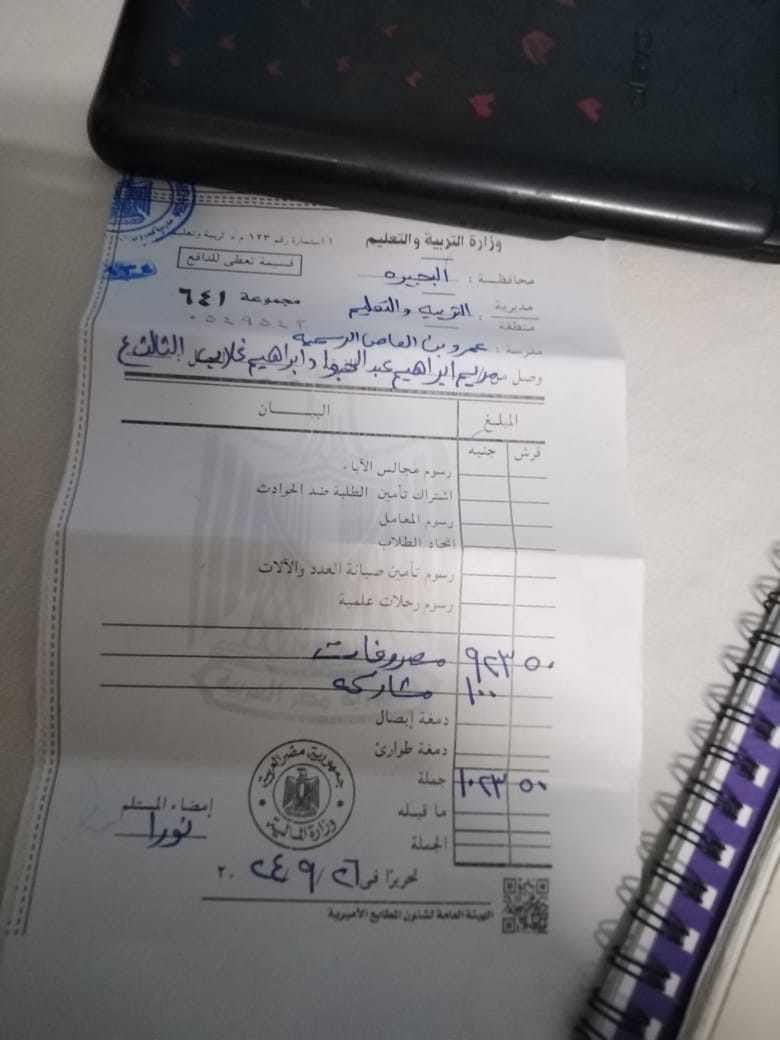 وزارة التربية والتعليم
( استمارة رقم ١٢٣ م.د تربية وتعليم
قسيمة تعطى للدافع
محافظة : البحيره
مديرية : التربيه والتعليم
منطقة
مجموعة ٦٤١
مدرسة : عمرو بن العاص الرسميه
وصل من مريم ابراهيم عبد ابراهيم الثالث ع
المبلغ البيان
قرش جنيه
رسوم مجالس الآباء
اشتراك تأمين الطلبة ضد الحوادث
رسوم المعامل
اتحاد الطلاب
رسوم تأمين صيانة العدد والآلات
رسوم رحلات علمية
٥٠ ٩٢٣ مصروفات
١٠٠ مشاركه
دمغة إيصال
دمغة طوارئ
٥٠ ١٠٢٣ جملة
ما قبله
الجملة
جمهورية مصر العربية
وزارة المالية
إمضاء المستلم
نورا
تحريرًا فى ٢٦ / ٩ / ٢٠٢٤
الهيئة العامة لشئون المطابع الأميرية